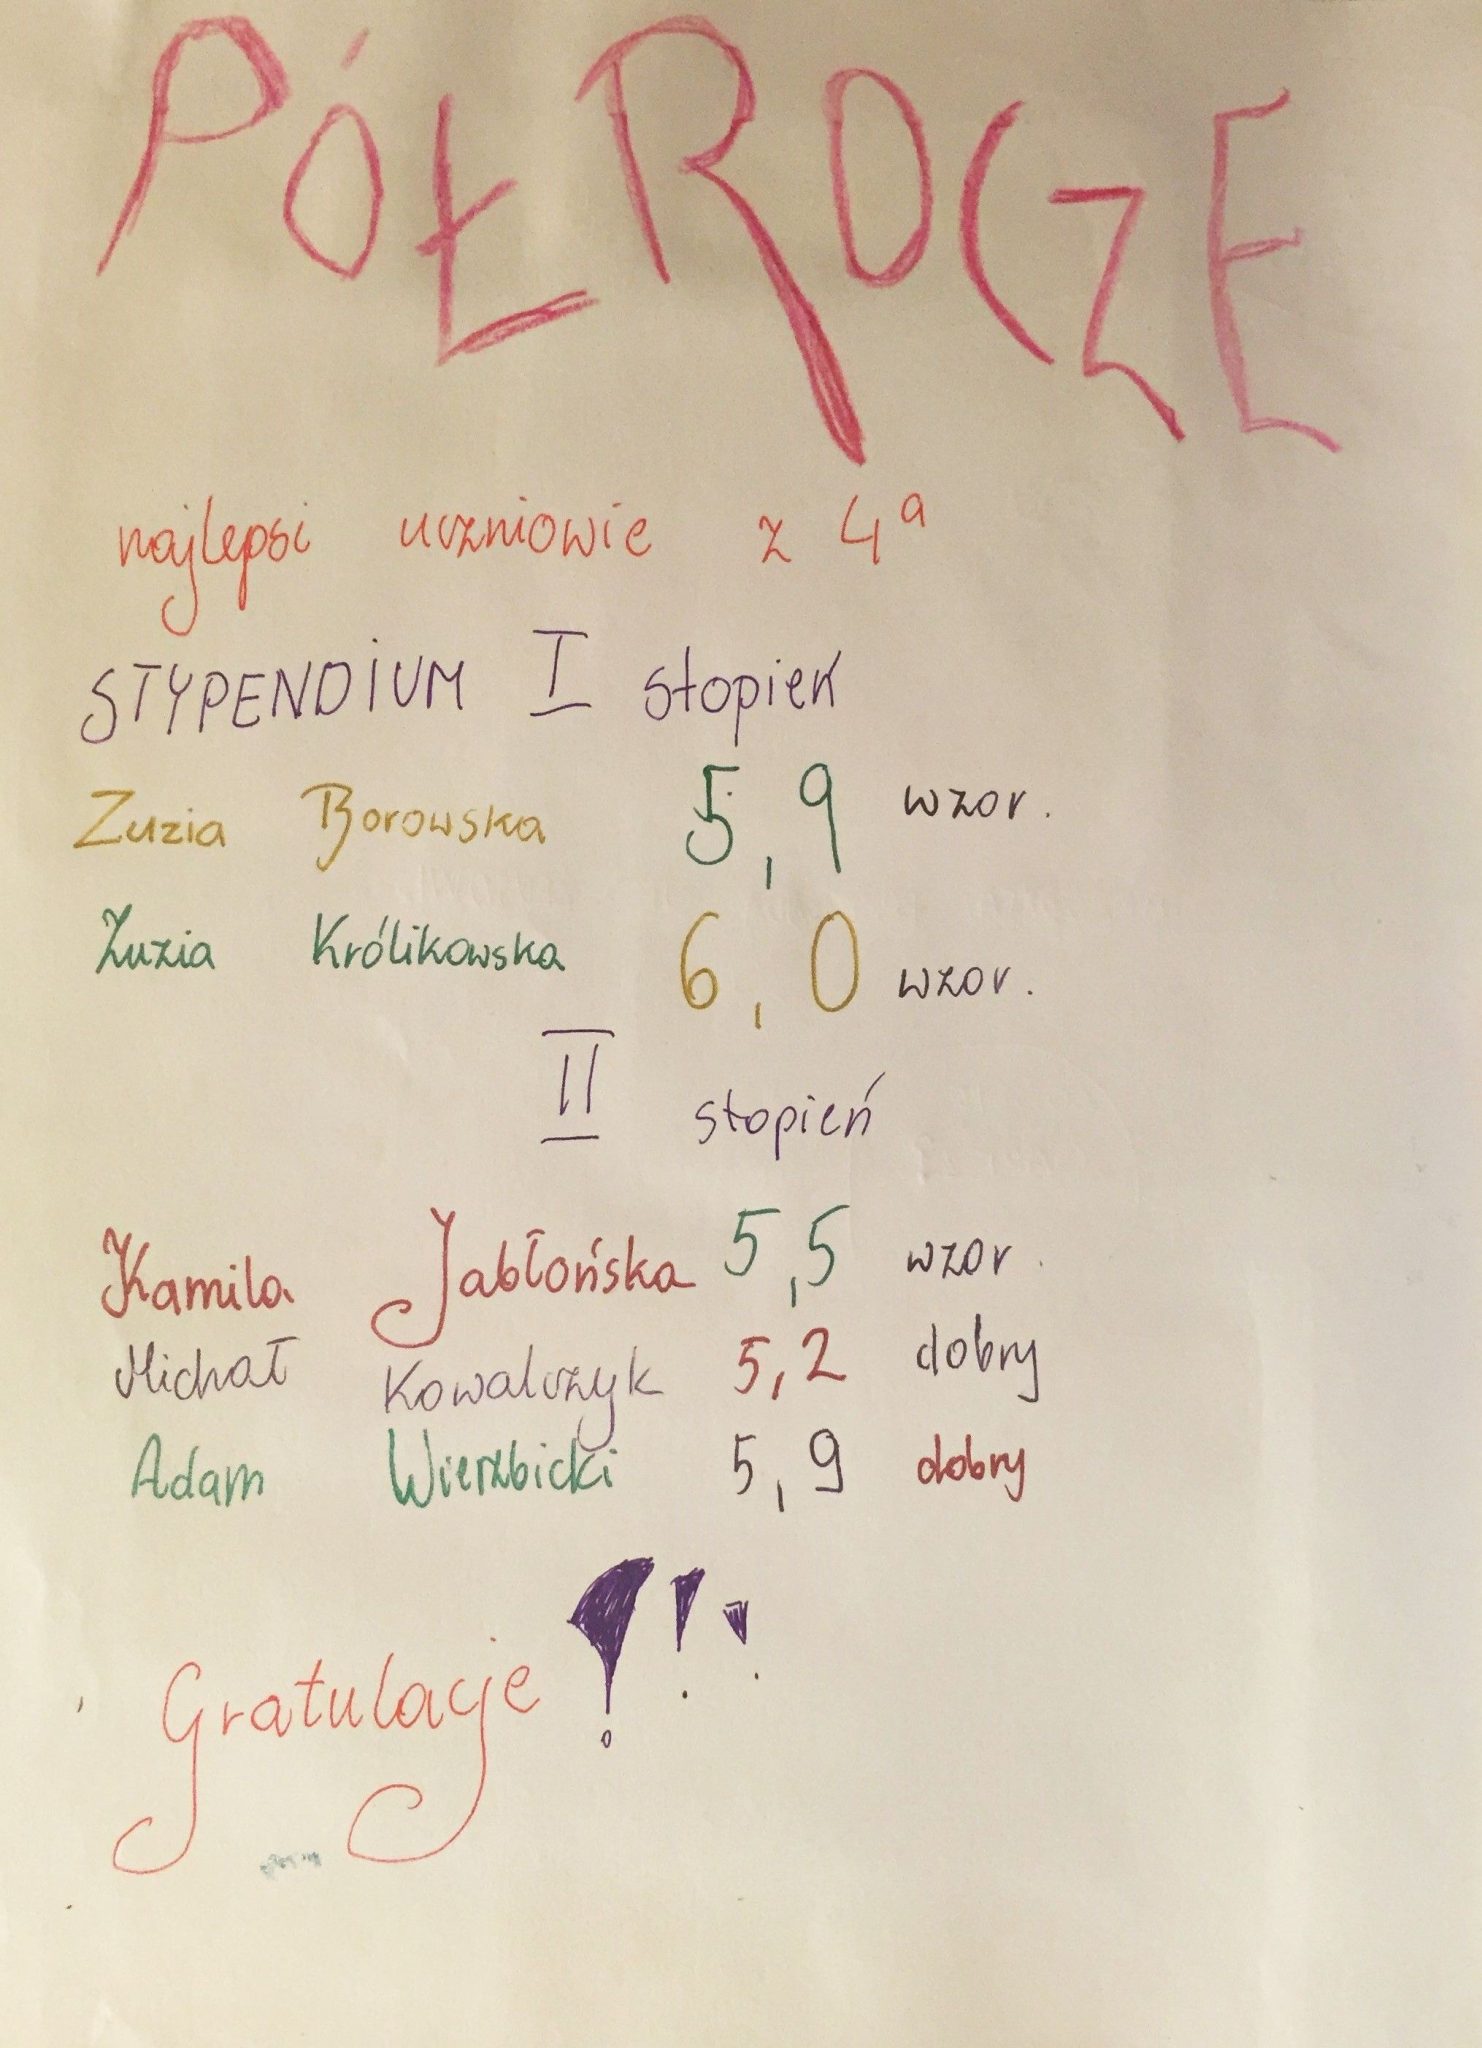 PÓŁROCZE
najlepsi uczniowie z 4a
STYPENDIUM I stopień
Zuzia Borowska 5,9 wzor.
Zuzia Królikowska 6,0 wzor.
II stopień
Kamila Jabłońska 5,5 wzor.
Michał Kowalczyk 5,2 dobry
Adam Wierzbicki 5,9 dobry
Gratulacje !!!